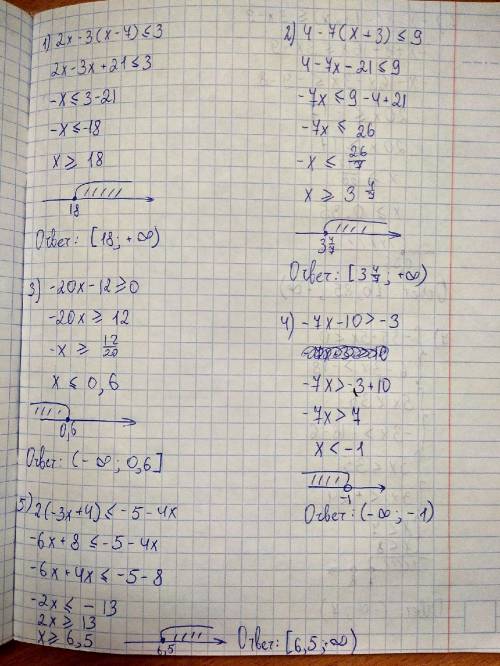 1) 2x-3(x-7)≤3
2x-3x+21≤3
-x≤3-21
-x≤-18
x≥18
18
Ответ: [18; +∞)
2) 4-7(x+3)≤9
4-7x-21≤9
-7x≤9-4+21
-7x≤26
-x≤26/7
x≥3 4/7
3 4/7
Ответ: [3 4/7; +∞)
3) -20x-12≥0
-20x≥12
-x≥12/20
x≤0,6
0,6
Ответ: (-∞; 0,6]
4) -7x-10>-3
-7x>-3+10
-7x>7
x<-1
-1
Ответ: (-∞; -1)
5) 2(-3x+4)≤-5-4x
-6x+8≤-5-4x
-6x+4x≤-5-8
-2x≤-13
2x≥13
x≥6,5
6,5
Ответ: [6,5; ∞)